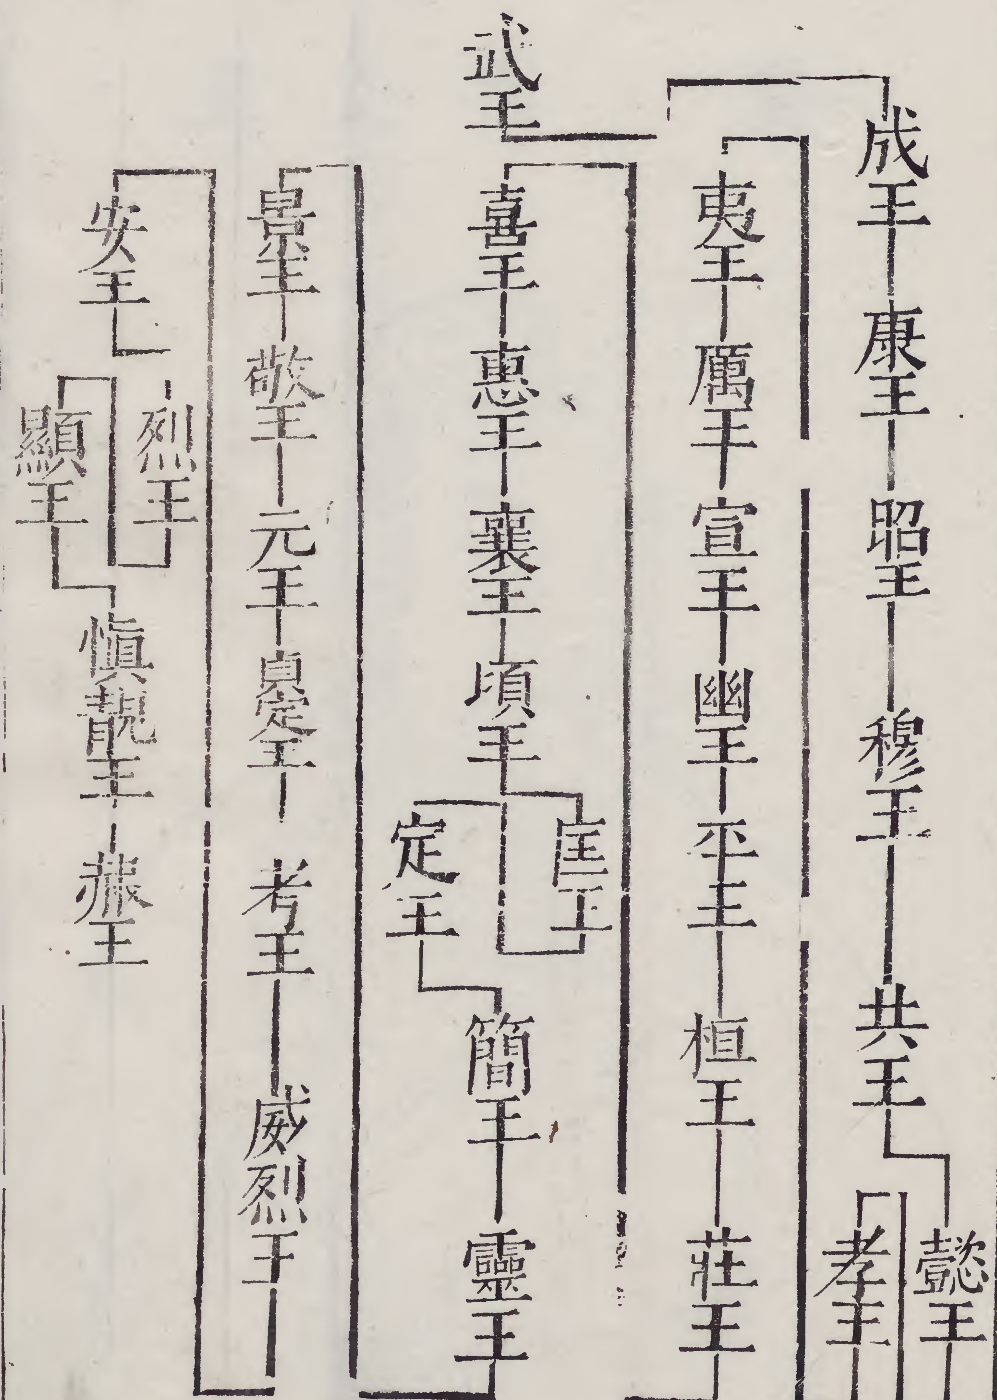 武王
成王
康王
昭王
穆王
共王
懿王
孝王
夷王
厲王
宣王
幽王
平王
桓王
莊王
喜王
惠王
襄王
頃王
匡王
定王
簡王
靈王
景王
敬王
元王
貞定王
考王
威烈王
安王
烈王
顯王
慎靚王
赧王